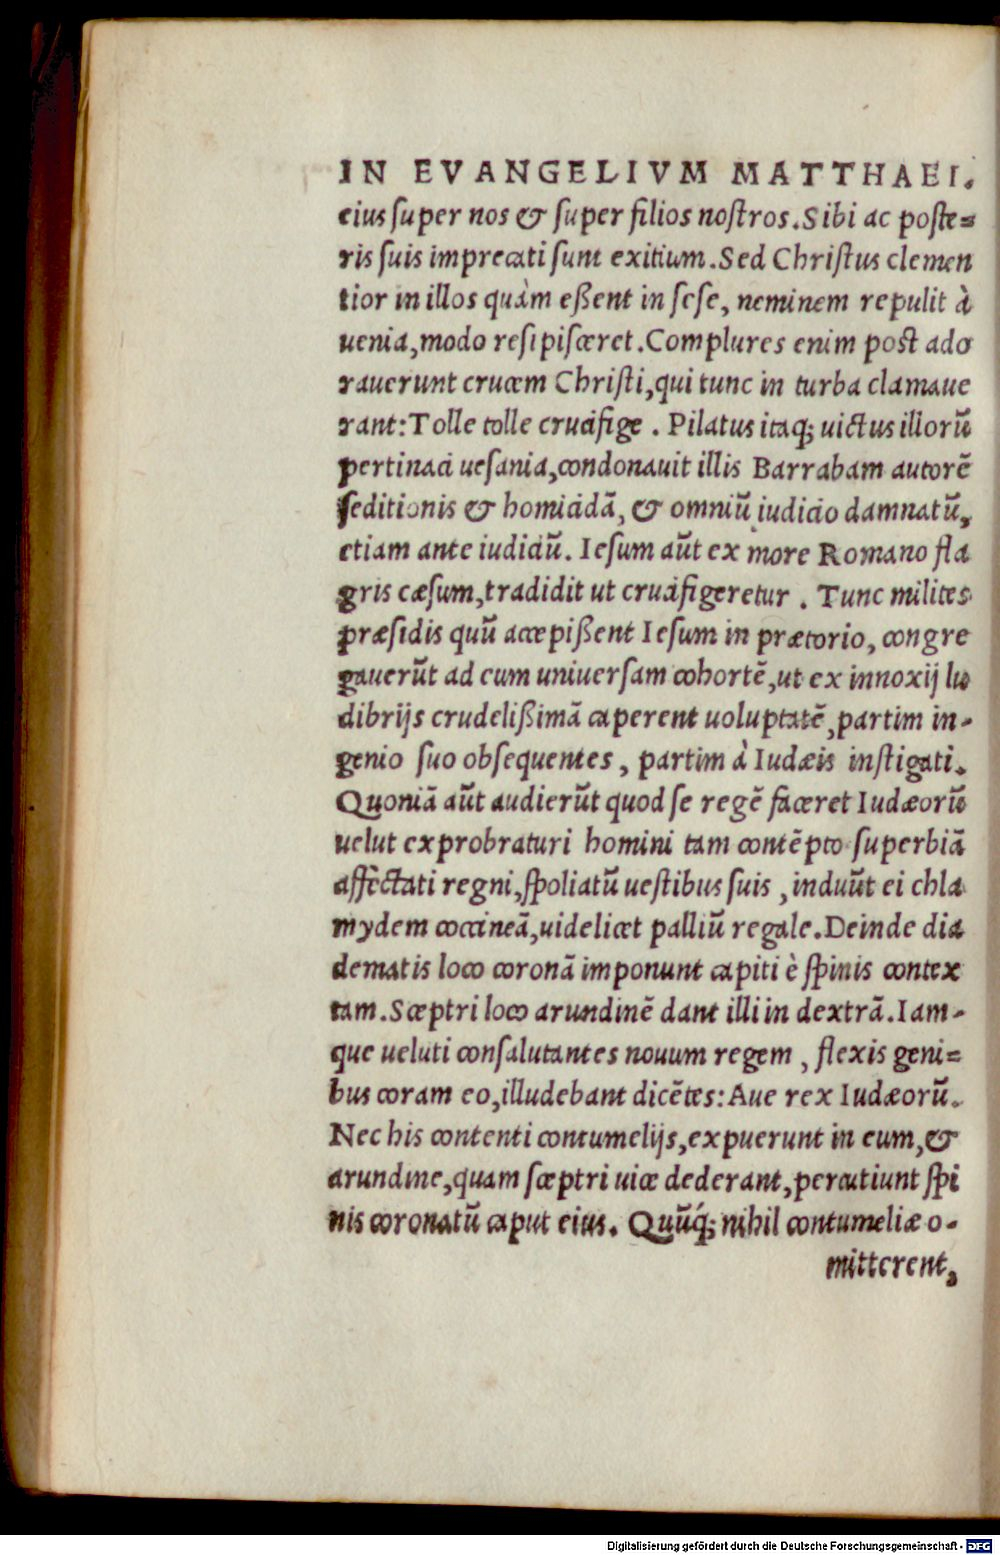 IN EVANGELIVM MATTHAEI.
eius super nos & super filios nostros. Sibi ac poste=
ris suis imprecati sunt exitium. Sed Christus clemen
tior in illos quàm eßent in sese, neminem repulit à
uenia, modo resipisceret. Complures enim post ado
rauerunt crucem Christi, qui tunc in turba clamaue
rant: Tolle tolle crucifige. Pilatus itaq; uictus illorū
pertinaci uesania, condonauit illis Barrabam autorē
seditionis & homicidā, & omniū iudicio damnatū,
etiam ante iudiciū. Iesum aūt ex more Romano fla
gris cæsum, tradidit ut crucifigeretur. Tunc milites
præsidis quū accepißent Iesum in prætorio, congre
gauerūt ad eum uniuersam cohortē, ut ex innoxij lu
dibrijs crudelißimā caperent uoluptatē, partim in-
genio suo obsequentes, partim à Iudæis instigati.
Quoniā aūt audierūt quod se regē faceret Iudæorū
uelut exprobraturi homini tam contēpto superbiā
affectati regni, spoliatū uestibus suis, induūt ei chla
mydem coccineā, uidelicet palliū regale. Deinde dia
dematis loco coronā imponunt capiti è spinis contex
tam. Sceptri loco arundinē dant illi in dextrā. Iam-
que ueluti consalutantes nouum regem, flexis geni=
bus coram eo, illudebant dicētes: Aue rex Iudæorū.
Nec his contenti contumelijs, expuerunt in eum, &
arundine, quam sceptri uice dederant, percutiunt spi
nis coronatū caput eius. Quūq́; nihil contumeliæ o-
mitterent,
Digitalisierung gefördert durch die Deutsche Forschungsgemeinschaft - DFG